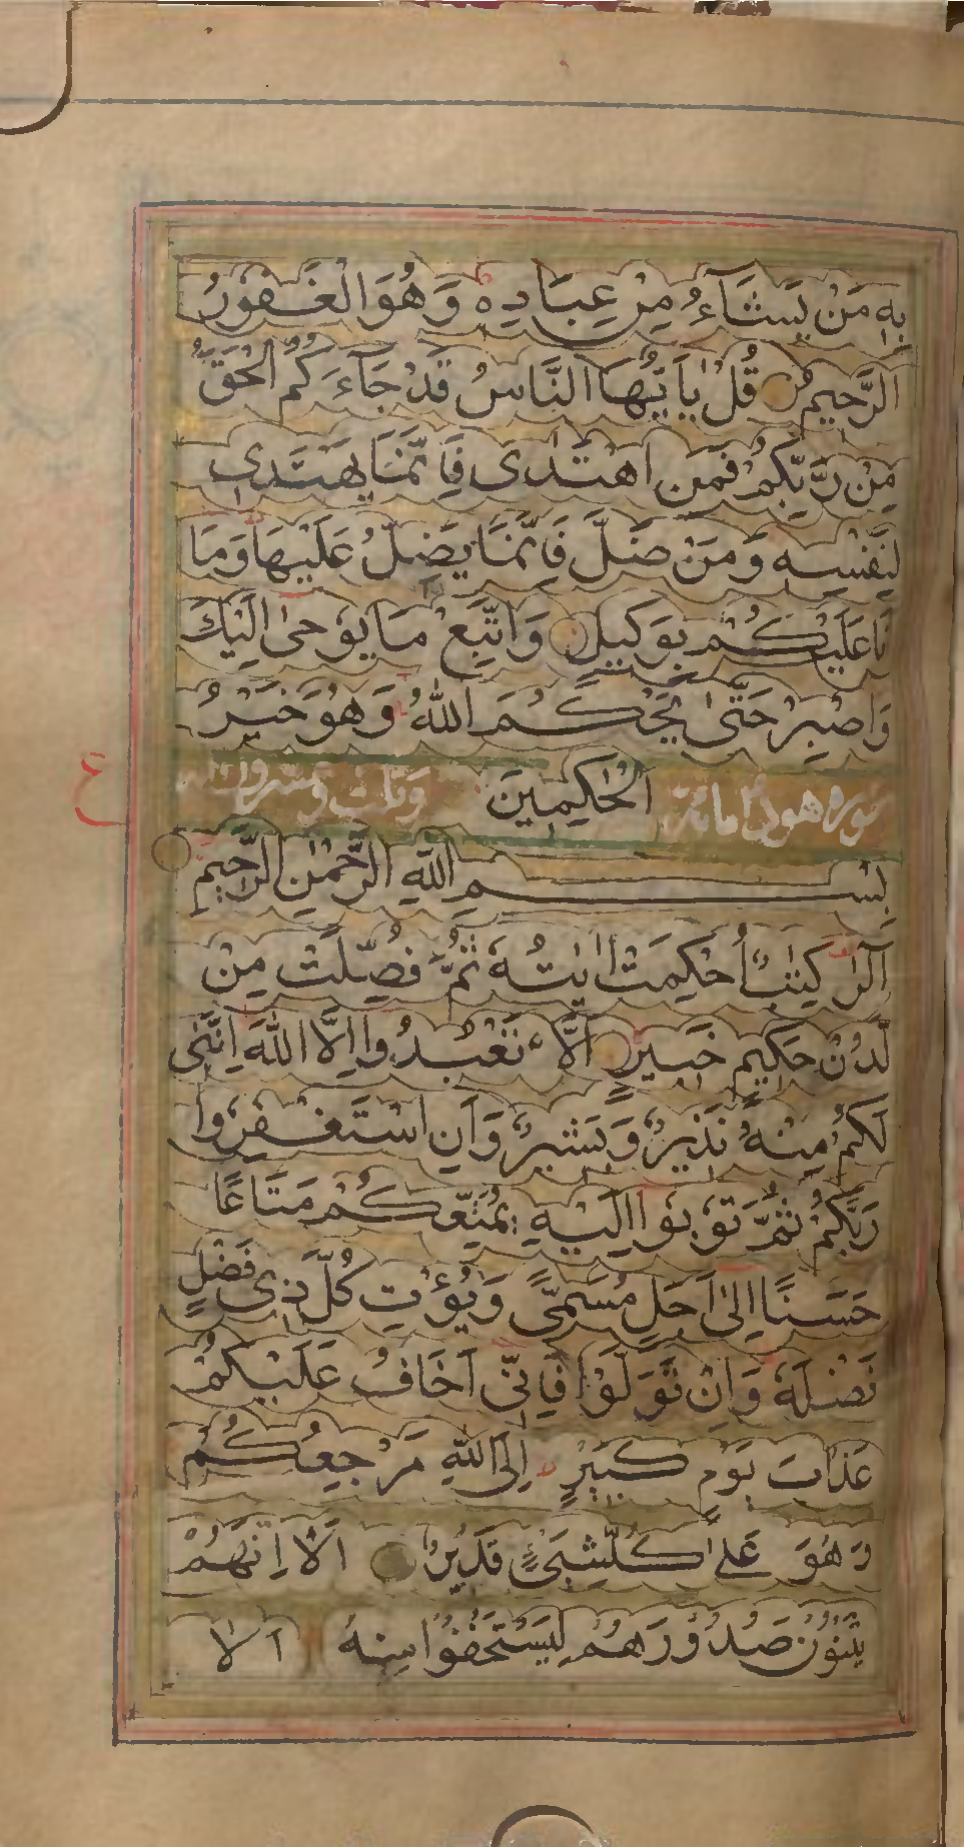 بِهٖ مَنْ يَّشَآءُ مِنْ عِبَادِهٖ وَهُوَ الْغَفُوْرُ
الرَّحِيْمُ قُلْ يٰاَيُّهَا النَّاسُ قَدْ جَآءَكُمُ الْحَقُّ
مِنْ رَّبِّكُمْ فَمَنِ اهْتَدٰى فَاِنَّمَا يَهْتَدِى
لِنَفْسِهٖ وَمَنْ ضَلَّ فَاِنَّمَا يَضِلُّ عَلَيْهَا وَمَا
اَنَا عَلَيْكُمْ بِوَكِيْلٍ وَاتَّبِعْ مَا يُوْحٰى اِلَيْكَ
وَاصْبِرْ حَتّٰى يَحْكُمَ اللّٰهُ وَهُوَ خَيْرُ
الْحٰكِمِيْنَ
سوره هود مائة وثلث وعشرون
ع
بِسْمِ اللّٰهِ الرَّحْمٰنِ الرَّحِيْمِ
الٓرٰ كِتٰبٌ اُحْكِمَتْ اٰيٰتُهٗ ثُمَّ فُصِّلَتْ مِنْ
لَّدُنْ حَكِيْمٍ خَبِيْرٍ اَلَّا تَعْبُدُوْا اِلَّا اللّٰهَ اِنَّنِىْ
لَكُمْ مِنْهُ نَذِيْرٌ وَّبَشِيْرٌ وَاَنِ اسْتَغْفِرُوْا
رَبَّكُمْ ثُمَّ تُوْبُوْا اِلَيْهِ يُمَتِّعْكُمْ مَتَاعًا
حَسَنًا اِلٰى اَجَلٍ مُسَمًّى وَيُؤْتِ كُلَّ ذِىْ فَضْلٍ
فَضْلَهٗ وَاِنْ تَوَلَّوْا فَاِنِّىْ اَخَافُ عَلَيْكُمْ
عَذَابَ يَوْمٍ كَبِيْرٍ اِلَى اللّٰهِ مَرْجِعُكُمْ
وَهُوَ عَلٰى كُلِّ شَىْءٍ قَدِيْرٌ اَلَا اِنَّهُمْ
يَثْنُوْنَ صُدُوْرَهُمْ لِيَسْتَخْفُوْا مِنْهُ اَلَا